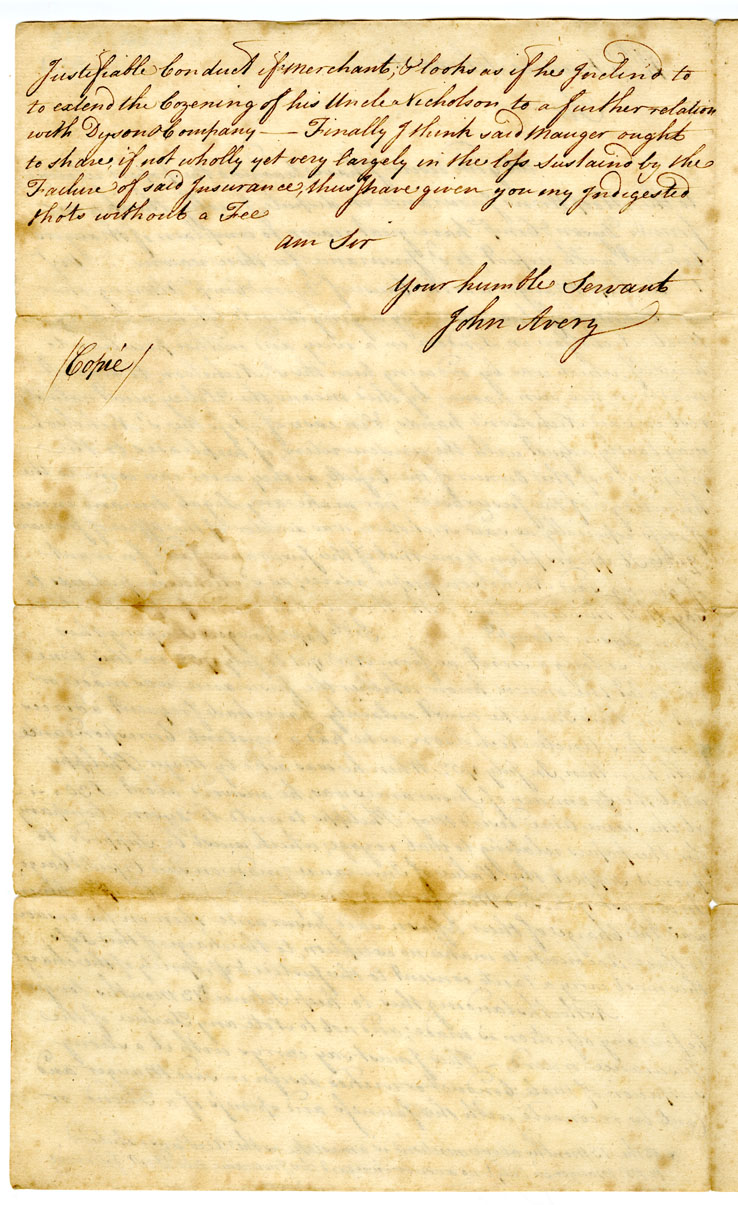 Justifiable Conduct if Merchant, & looks as if he Inclind to
to extend the Cozening of his Uncle Nicholson to a further relation
with Dyson & Company — Finally I think said Mauger ought
to share, if not wholly yet very largely in the loss sustaind by the
Failure of said Insurance, thus I have given you my Indigested
thóts without a Fee
am Sir
Your humble Servant
John Avery
(Copié)